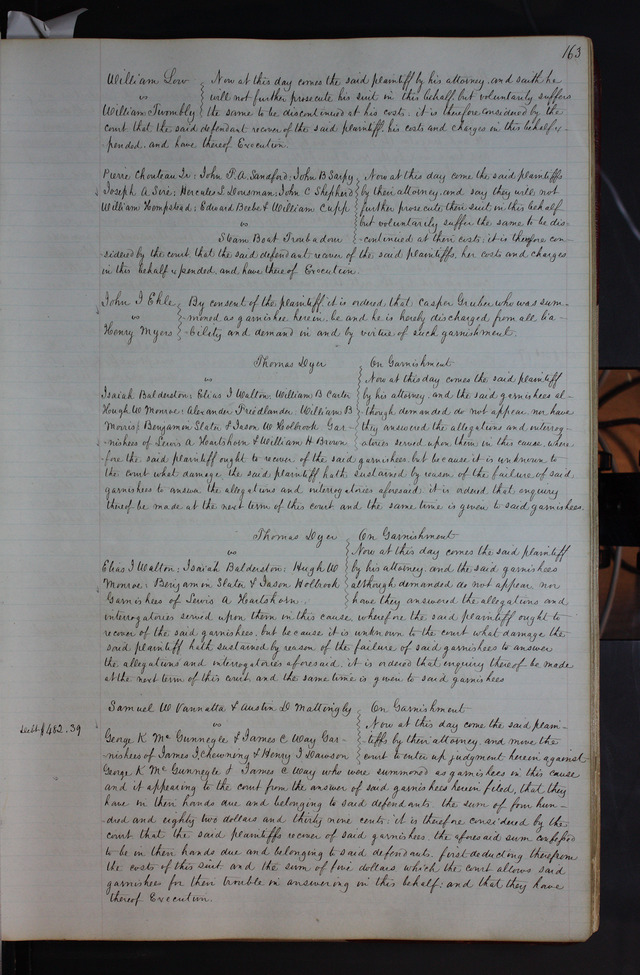 163
William Low
vs
William Twombly
Now at this day comes the said plaintiff by his attorney and saith he
will not further prosecute his suit in this behalf, but voluntarily suffers
the same to be discontinued at his costs: it is therefore considered by the
court that the said defendant recover of the said plaintiff his costs and charges in this behalf ex-
pended, and have thereof Execution.
Pierre Chouteau Jr: John F. A. Sandford: John B Sarpy
Joseph A Sire: Hercules L Dousman: John C Shepherd
William Hempstead: Edward Beebe & William Cupp
vs
Steam Boat Troubadour
Now at this day come the said plaintiffs
by their attorney, and say they will not
further prosecute their suit in this behalf
but voluntarily suffer the same to be dis-
continued at their costs: it is therefore con-
sidered by the court that the said defendant recover of the said plaintiffs, her costs and charges
in this behalf expended, and have thereof Execution.
John I Ehle
vs
Henry Myers
By consent of the plaintiff, it is ordered that Casper Gruber who was sum-
moned as garnishee herein, be and he is hereby discharged from all lia-
bility and demand in and by virtue of such garnishment.
Thomas Dyer
vs
Isaiah Balderston: Elias I Walton: William B Carter
Hugh W Monroe: Alexander Friedlander: William B
Morris: Benjamin Slater & Jason W Holbrook Gar-
nishees of Lewis A Hartshorn & William H Brown
On Garnishment
Now at this day comes the said plaintiff
by his attorney, and the said garnishees al-
though demanded do not appear, nor have
they answered the allegations and interrog-
atories served upon them in this cause, where-
fore the said plaintiff ought to recover of the said garnishees, but because it is unknown to
the court what damage the said plaintiff hath sustained by reason of the failure of said
garnishees to answer the allegations and interrogatories aforesaid, it is ordered that enquiry
thereof be made at the next term of this court, and the same time is given to said garnishees.
Thomas Dyer
vs
Elias I Walton: Isaiah Balderston: Hugh W
Monroe: Benjamin Slater & Jason Holbrook
Garnishees of Lewis A Hartshorn.
On Garnishment
Now at this day comes the said plaintiff
by his attorney, and the said garnishees
although demanded do not appear nor
have they answered the allegations and
interrogatories served upon them in this cause wherefore the said plaintiff ought to
recover of the said garnishees, but because it is unknown to the court what damage the
said plaintiff hath sustained by reason of the failure of said garnishees to answer
the allegations and interrogatories aforesaid, it is ordered that enquiry thereof be made
at the next term of this court and the same time is given to said garnishees
Debt $482.39
Samuel W Vannatta & Austin D Mattingly
vs
George K McGunnegle & James C Way Gar-
nishees of James F. Chewning & Henry I Dawson
On Garnishment
Now at this day come the said plain-
tiffs by their attorney, and move the
court to enter up judgment herein against
George K McGunnegle & James C Way who were summoned as garnishees in this cause
and it appearing to the court from the answer of said garnishees herein filed, that they
have in their hands due and belonging to said defendants, the sum of four hun-
dred and eighty two dollars and thirty nine cents: it is therefore considered by the
court that the said plaintiffs recover of said garnishees, the aforesaid sum confessed
to be in their hands due and belonging to said defendants, first deducting therefrom
the costs of this suit and the sum of five dollars which the court allows said
garnishees for their trouble in answering in this behalf: and that they have
thereof Execution.